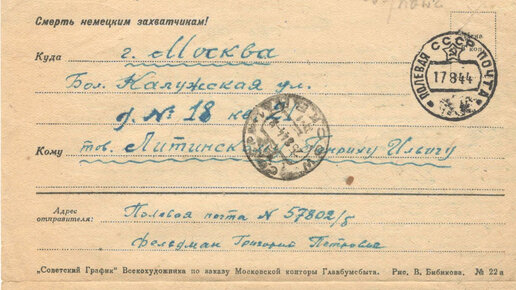 Смерть немецким захватчикам!
ПОЛЕВАЯ ПОЧТА СССР
17 8 44
Куда г. Москва
Бол. Калужская ул.
д. № 18 кв. 21
Кому тов. Литинскому Генриху Ильичу
Адрес отправителя:
Полевая почта N 57802/б
Фельдман Григорий Петрович
„Советский График" Всекохудожника по заказу Московской конторы Главбумсбыта. Рис. В. Бибикова. № 22а